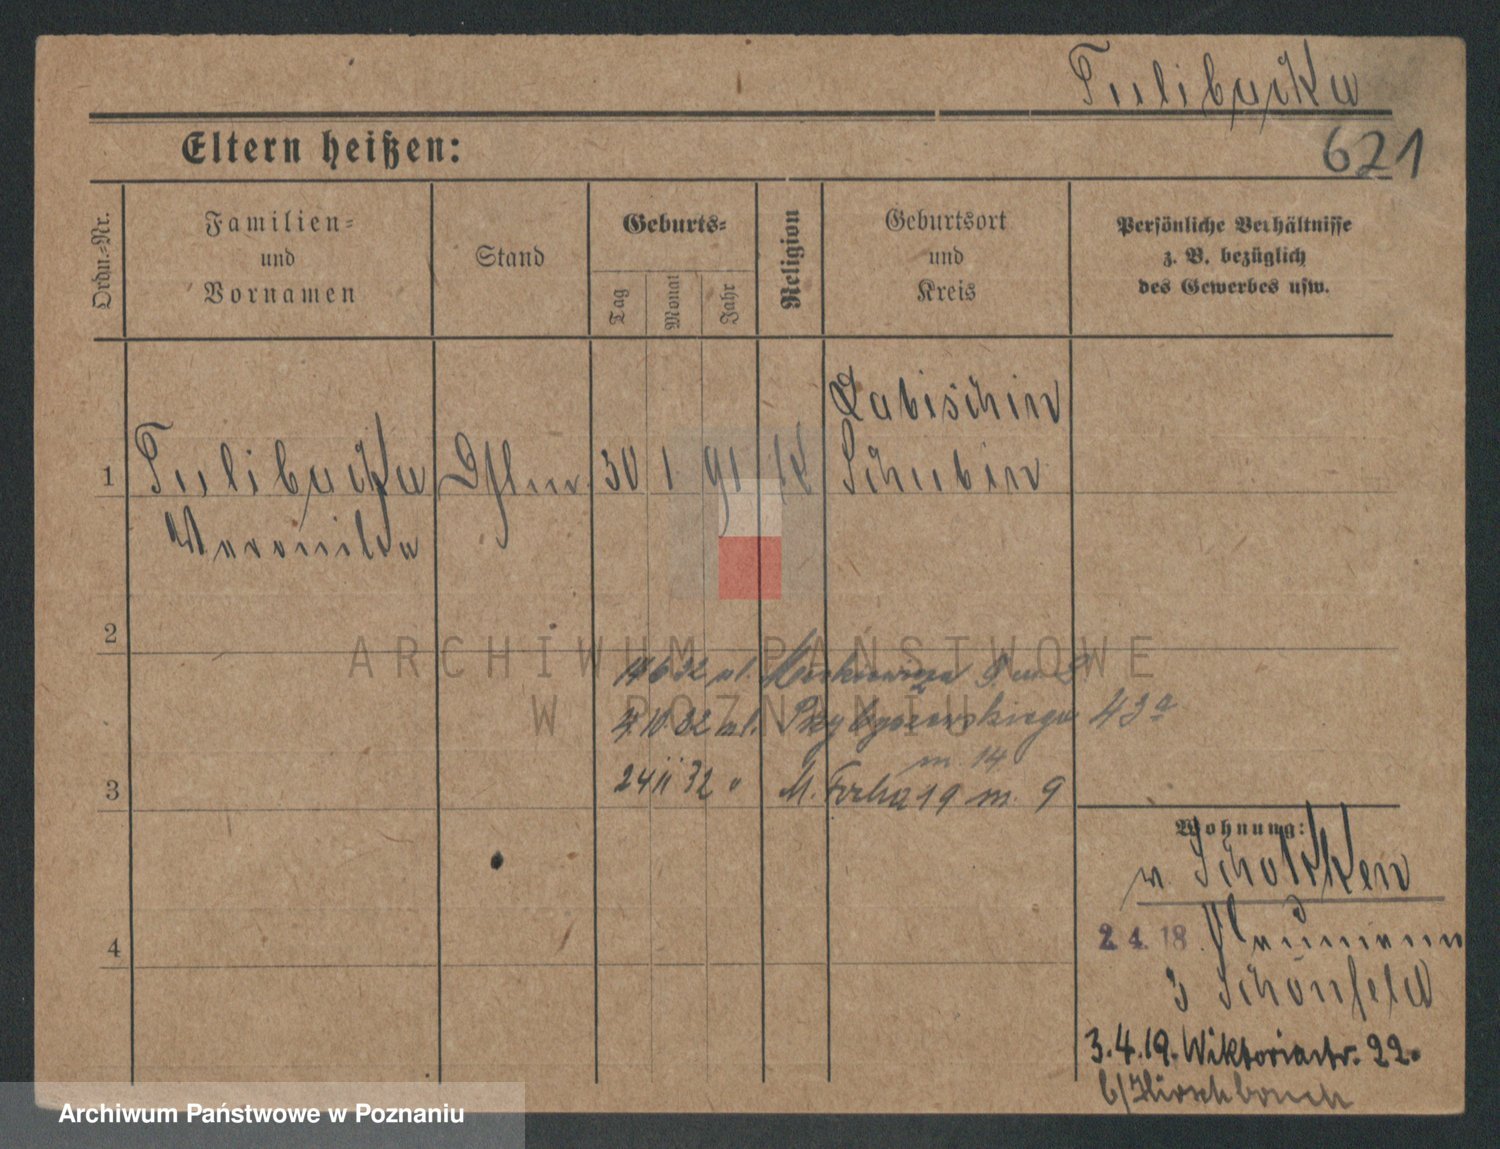 Tulibacka
621
Eltern heißen:
Ordn.-Nr.
Familien-
und
Vornamen
Stand
Geburts-
Tag
Monat
Jahr
Religion
Geburtsort
und
Kreis
Persönliche Verhältnisse
z. B. bezüglich
des Gewerbes usw.
Labischin
1 Tulibacka 30 1. 91 K Schubin
Veronika
2
14 6 32 ul.
7. 10. 32 ul. Przybyszewskiego 43a
m. 14
3 24 11 32 " M. Focha 19 m. 9
Wohnung:
v. Schokken
4
2. 4. 18. Naumann
Schönfeld
3.4.19. Wiktoriastr. 22.
b/Hirschbruch
ARCHIWUM PAŃSTWOWE
W POZNANIU
Archiwum Państwowe w Poznaniu